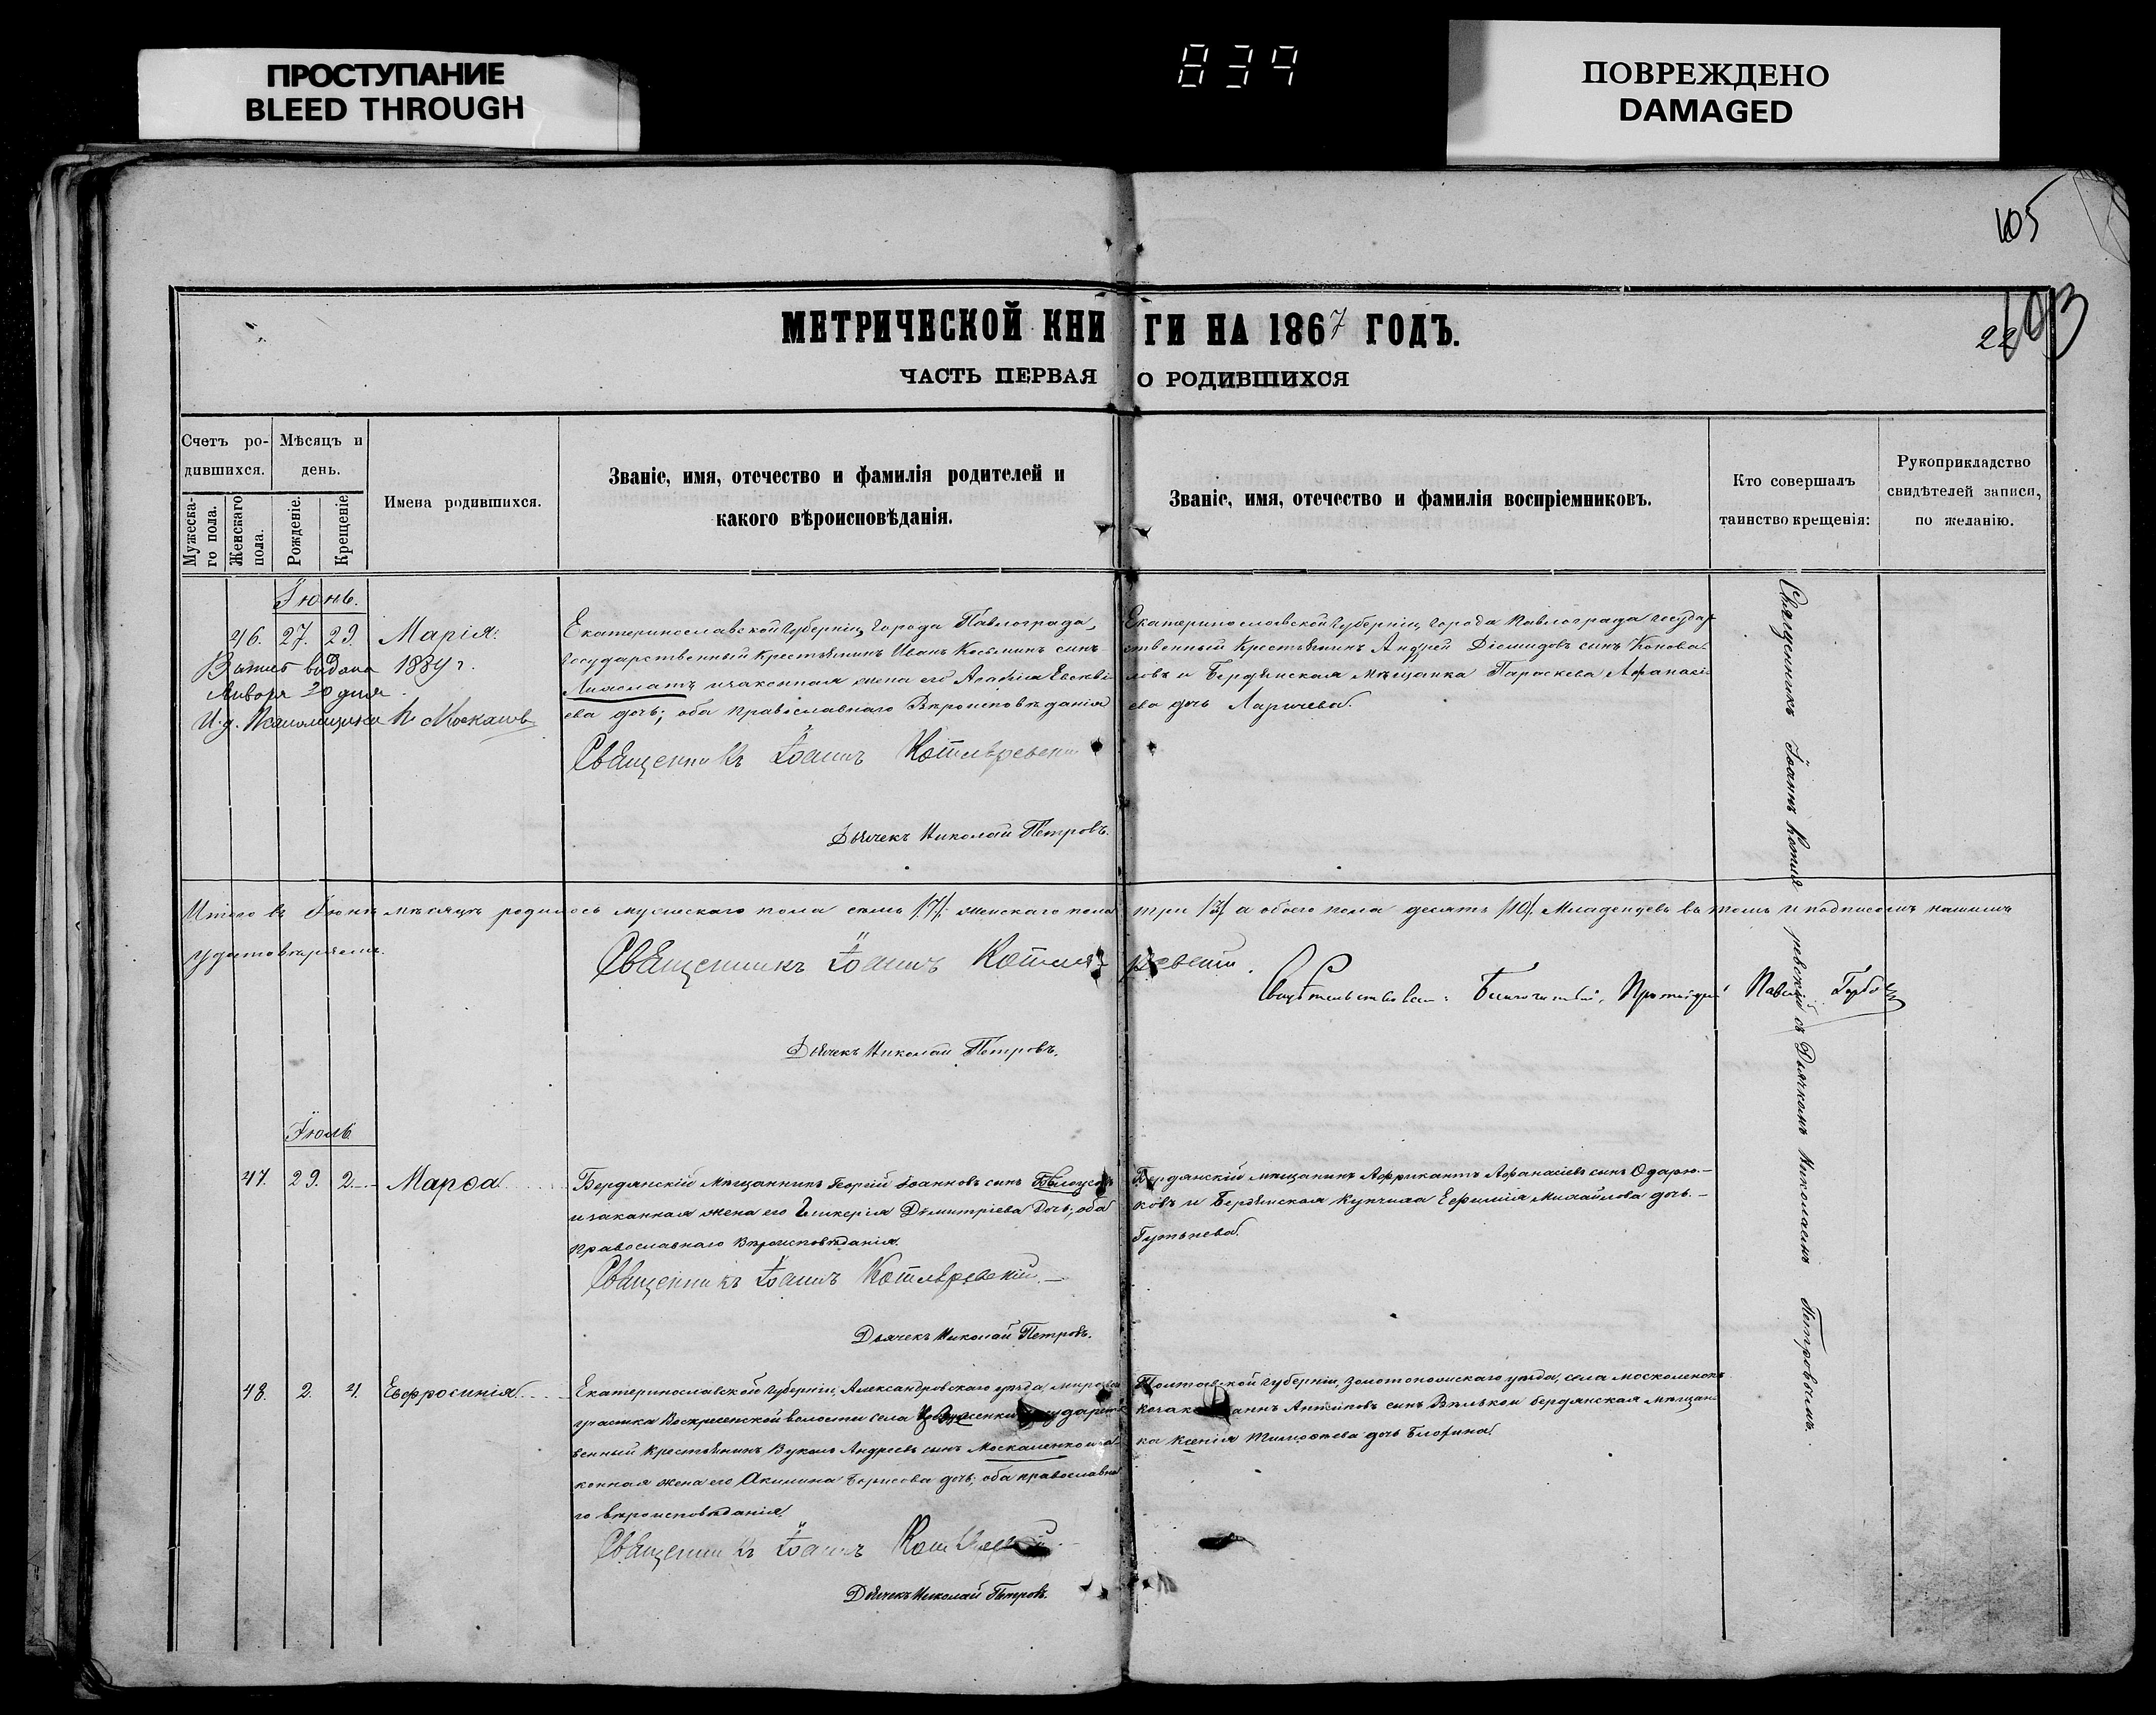 ПРОСТУПАНИЕ
BLEED THROUGH
839
ПОВРЕЖДЕНО
DAMAGED
105
103
22
МЕТРИЧЕСКОЙ КНИГИ НА 1867 ГОДЪ.
ЧАСТЬ ПЕРВАЯ О РОДИВШИХСЯ
Счетъ родившихся.
Мужескаго пола.
Женскаго пола.
Мѣсяцъ и день.
Рожденіе.
Крещеніе
Имена родившихся.
Званіе, имя, отечество и фамилія родителей и
какого вѣроисповѣданія.
Званіе, имя, отчество и фамилія воспріемниковъ.
Кто совершалъ
таинство крещенія:
Рукоприкладство
свидѣтелей записи,
по желанію.
Іюнь.
46. 27. 29. Марія.
Екатеринославской Губерніи, города Павлограда,
Государственный Крестьянинъ Иванъ Косьминъ сынъ
и законная жена его
ева дочь; оба Православнаго Вѣроисповѣданія
Священникъ Іоаннъ Котляревскій
Дьячекъ Николай Петровъ.
Екатеринославской Губерніи, города Павлограда государ
ственный Крестьянинъ Андрей Діомидовъ сынъ Конова
ловъ и Бердянская Мѣщанка Параскева Афанасі
ева дочь Ларичева.
января 20 дня
Итого въ Іюнѣ мѣсяцѣ родилось мужескаго пола семь /7/. женскаго пола три /3/ а обоего пола десять /10/. Младенцевъ въ томъ и подписомъ нашимъ
удостовѣряемъ.
Священникъ Іоаннъ Котляревскій.
Свидѣтельствовалъ: Благочинный, Протоіерей Павелъ
Дьячекъ Николай Петровъ.
Іюль
47. 29. 2. Марѳа
Бердянскій Мѣщанинъ Георгій Іоанновъ сынъ Бѣлоусовъ
и законная жена его Гликерія Димитріева Дочь; оба
православнаго Вѣроисповѣданія.
Священникъ Іоаннъ Котляревскій.
Дьячекъ Николай Петровъ.
Бердянскій мѣщанинъ Африкантъ Афанасіевъ сынъ Одарю-
ковъ и Бердянская Купчиха Ефимія Михайлова дочь
48. 2. 4. Евфросинія
Екатеринославской Губерніи, Александровскаго уѣзда,
участка Воскресенской волости села
венный Крестьянинъ Вуколъ Андреевъ сынъ Москаленко и за-
конная жена его Акилина Борисова дочь; оба православна
го вѣроисповѣданія.
Священникъ Іоаннъ
Дьячекъ Николай Петровъ.
Полтавской Губерніи, Золотоношскаго уѣзда, села
Антиповъ сынъ бердянская мѣщан
ка Ксенія Тимоѳеева дочь
Священникъ Іоаннъ Котляревскій съ Дьячкомъ Николаемъ Петровымъ.